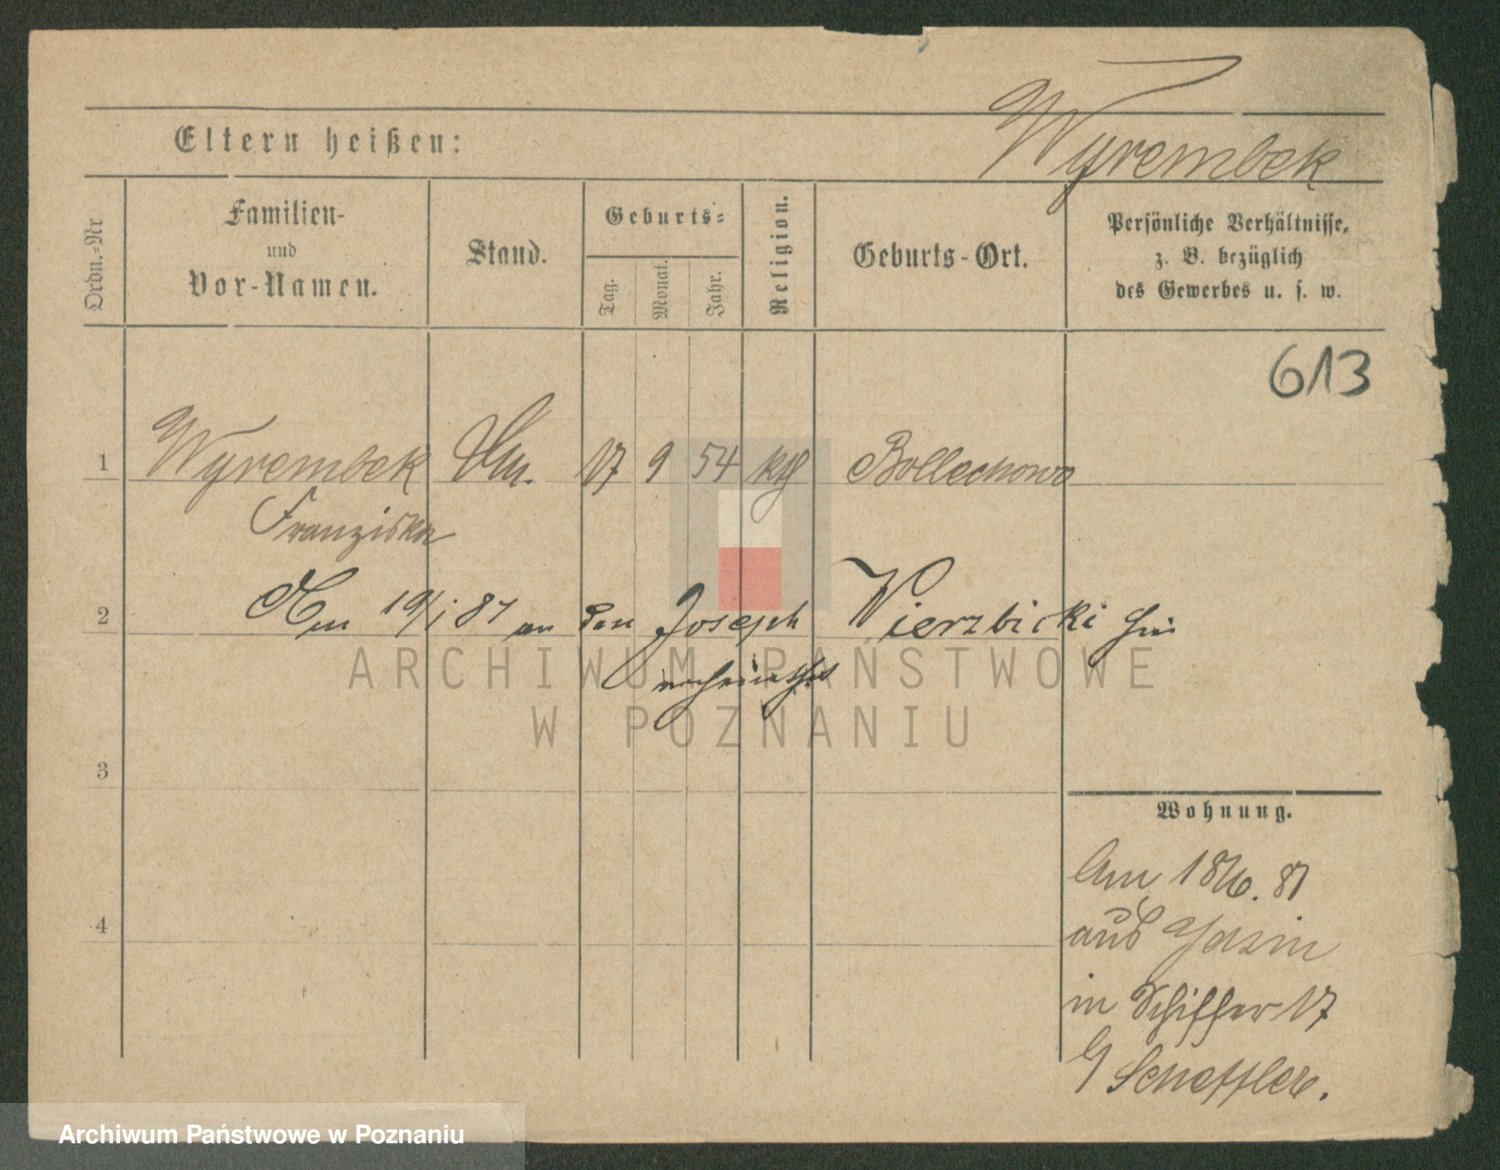 Wyrembek
Eltern heißen:
Ordn.-Nr
Familien-
und
Vor-Namen.
Stand.
Geburts-
Tag.
Monat.
Jahr.
Religion.
Geburts-Ort.
Persönliche Verhältnisse,
z. B. bezüglich
des Gewerbes u. s. w.
613
1 Wyrembek 17 9 54 kth Bollechowo
Franziska
2 Am 19/1 87 an den Joseph Wierzbicki hier
verheirathet
ARCHIWUM PAŃSTWOWE
W POZNANIU
3
Wohnung.
Am 18/6. 81
4
aus Jasin
in Schiffer 17
b/ Scheffler.
Archiwum Państwowe w Poznaniu